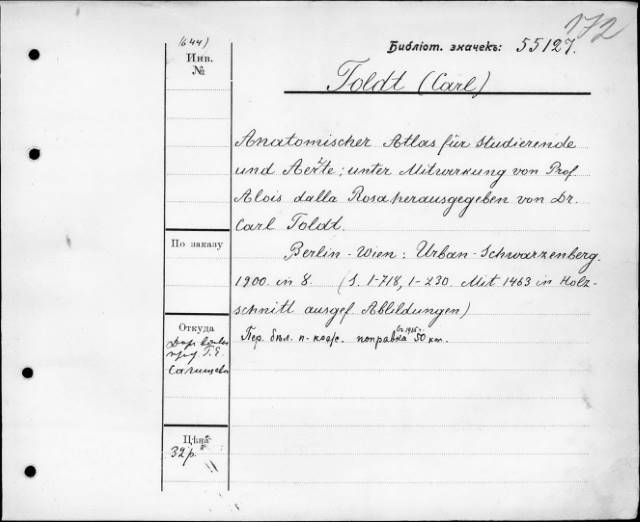 172
Библіот. значекъ: 55127.
(644)
Инв.
№
Toldt (Carl)
Anatomischer Atlas für Studierende
und Aerzte; unter Mitwirkung von Prof.
Alois dalla Rosa herausgegeben von Dr.
Carl Toldt.
Berlin-Wien: Urban-Schwarzenberg.
1900. in 8. (S. 1-718, 1-230. Mit 1463 in Holz-
schnitt ausgef. Abbildungen)
По заказу
Откуда
Г. Е.
Салищева
Пер. поправка 50 к.
Цѣна
32 р.